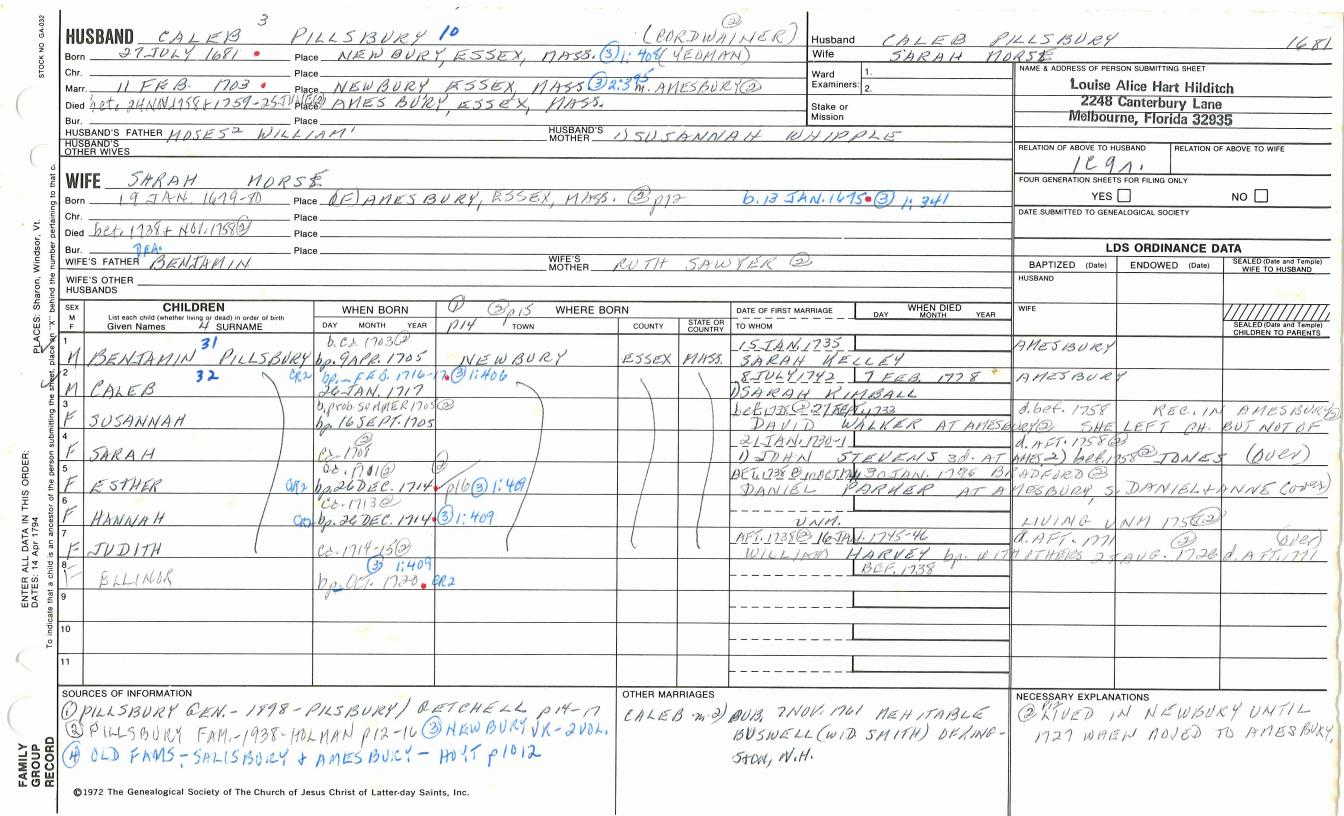 STOCK NO. GA-032
3
HUSBAND CALEB PILLSBURY 10 (CORDWAINER) ②
Born 27 JULY 1681 Place NEWBURY, ESSEX, MASS. ③ 1:408 (YEOMAN)
Chr. Place
Marr. 11 FEB. 1703 Place NEWBURY ESSEX, MASS ③ 2:395 m. AMESBURY ②
Died bet. 24 NOV. 1758 + 1759-25 JUNE Place AMESBURY, ESSEX, MASS.
Bur. Place
HUSBAND'S FATHER MOSES² WILLIAM¹ HUSBAND'S MOTHER 1) SUSANNAH WHIPPLE
HUSBAND'S OTHER WIVES
Husband CALEB PILLSBURY 1681
Wife SARAH MORSE
Ward Examiners: 1.
2.
Stake or Mission
NAME & ADDRESS OF PERSON SUBMITTING SHEET
Louise Alice Hart Hilditch
2248 Canterbury Lane
Melbourne, Florida 32935
RELATION OF ABOVE TO HUSBAND RELATION OF ABOVE TO WIFE
FOUR GENERATION SHEETS FOR FILING ONLY
YES NO
DATE SUBMITTED TO GENEALOGICAL SOCIETY
WIFE SARAH MORSE
Born 19 JAN 1679-80 Place (OF) AMESBURY, ESSEX, MASS. ② p12 b. 13 JAN. 1675 ③ 1:341
Chr. Place
Died bet. 1738 + NOV. 1758 ② Place
Bur. Place
WIFE'S FATHER DEA. BENJAMIN WIFE'S MOTHER RUTH SAWYER ②
WIFE'S OTHER HUSBANDS
LDS ORDINANCE DATA
BAPTIZED (Date) ENDOWED (Date) SEALED (Date and Temple) WIFE TO HUSBAND
HUSBAND
WIFE
SEALED (Date and Temple) CHILDREN TO PARENTS
SEX M F
CHILDREN
List each child (whether living or dead) in order of birth
Given Names 4 SURNAME
WHEN BORN
DAY MONTH YEAR
① p14 ② p15 WHERE BORN
TOWN COUNTY STATE OR COUNTRY
DATE OF FIRST MARRIAGE
TO WHOM
WHEN DIED
DAY MONTH YEAR
1 31 b. ca. 1703 ② 15 JAN. 1735 AMESBURY
M BENJAMIN PILLSBURY bp. 9 APR. 1705 NEWBURY ESSEX MASS. SARAH KELLEY
2 32 CR2 bp. FEB. 1716-17 ③ 1:406 8 JULY 1742 7 FEB. 1778 AMESBURY
M CALEB 26 JAN. 1717 1) SARAH KIMBALL
3 b. prob SUMMER 1705 ② d. bef. 1758 REC. IN AMESBURY ②
F SUSANNAH bp. 16 SEPT. 1705 DAVID WALKER AT AMESBURY ② SHE LEFT CH. BUT NOT OF
4 ② 21 JAN. 1730-1 d. AFT. 1758 ②
F SARAH ca. 1708 1) JOHN STEVENS 3d. AT AMES. 2) bef. 1758 ② JONES (over)
5 ② 30 JAN. 1746 BRADFORD ②
F ESTHER CR2 bp. 26 DEC. 1714 p16 ③ 1:409 DANIEL PARKER AT AMESBURY S. DANIEL + ANNE (over)
6 ca. 1713 ② UNM. LIVING UNM 1758 ②
F HANNAH bp. 26 DEC. 1714 ③ 1:409
7 AFT. 1738 ② 16 JAN. 1745-46 d. AFT. 1771 ② (over)
F JUDITH ca. 1714-15 ② WILLIAM HARVEY bp. WITH OTHERS 2 AUG. 1726 d. AFT. 1771
8 ③ 1:409 BEF. 1738
F ELLINOR bp. OCT. 1720 CR2
9
10
11
SOURCES OF INFORMATION
① PILLSBURY GEN.- 1898 - PILSBURY/ GETCHELL p14-17
② PILLSBURY FAM.-1938-HOLMAN p12-16 ③ NEWBURY VR-2 VOL.
④ OLD FAMS-SALISBURY + AMESBURY- HOYT p1012
OTHER MARRIAGES
CALEB m 2) PUB. 7 NOV. 1761 MEHITABLE
BUSWELL (WID SMITH) OF KING-
STON, N.H.
NECESSARY EXPLANATIONS
② p12 LIVED IN NEWBURY UNTIL
1727 WHEN MOVED TO AMESBURY.
©1972 The Genealogical Society of The Church of Jesus Christ of Latter-day Saints, Inc.
FAMILY GROUP RECORD
ENTER ALL DATA IN THIS ORDER:
DATES: 14 Apr 1794
PLACES: Sharon, Windsor, Vt.
To indicate that a child is an ancestor of the person submitting the sheet, place an "X" behind the number pertaining to that c